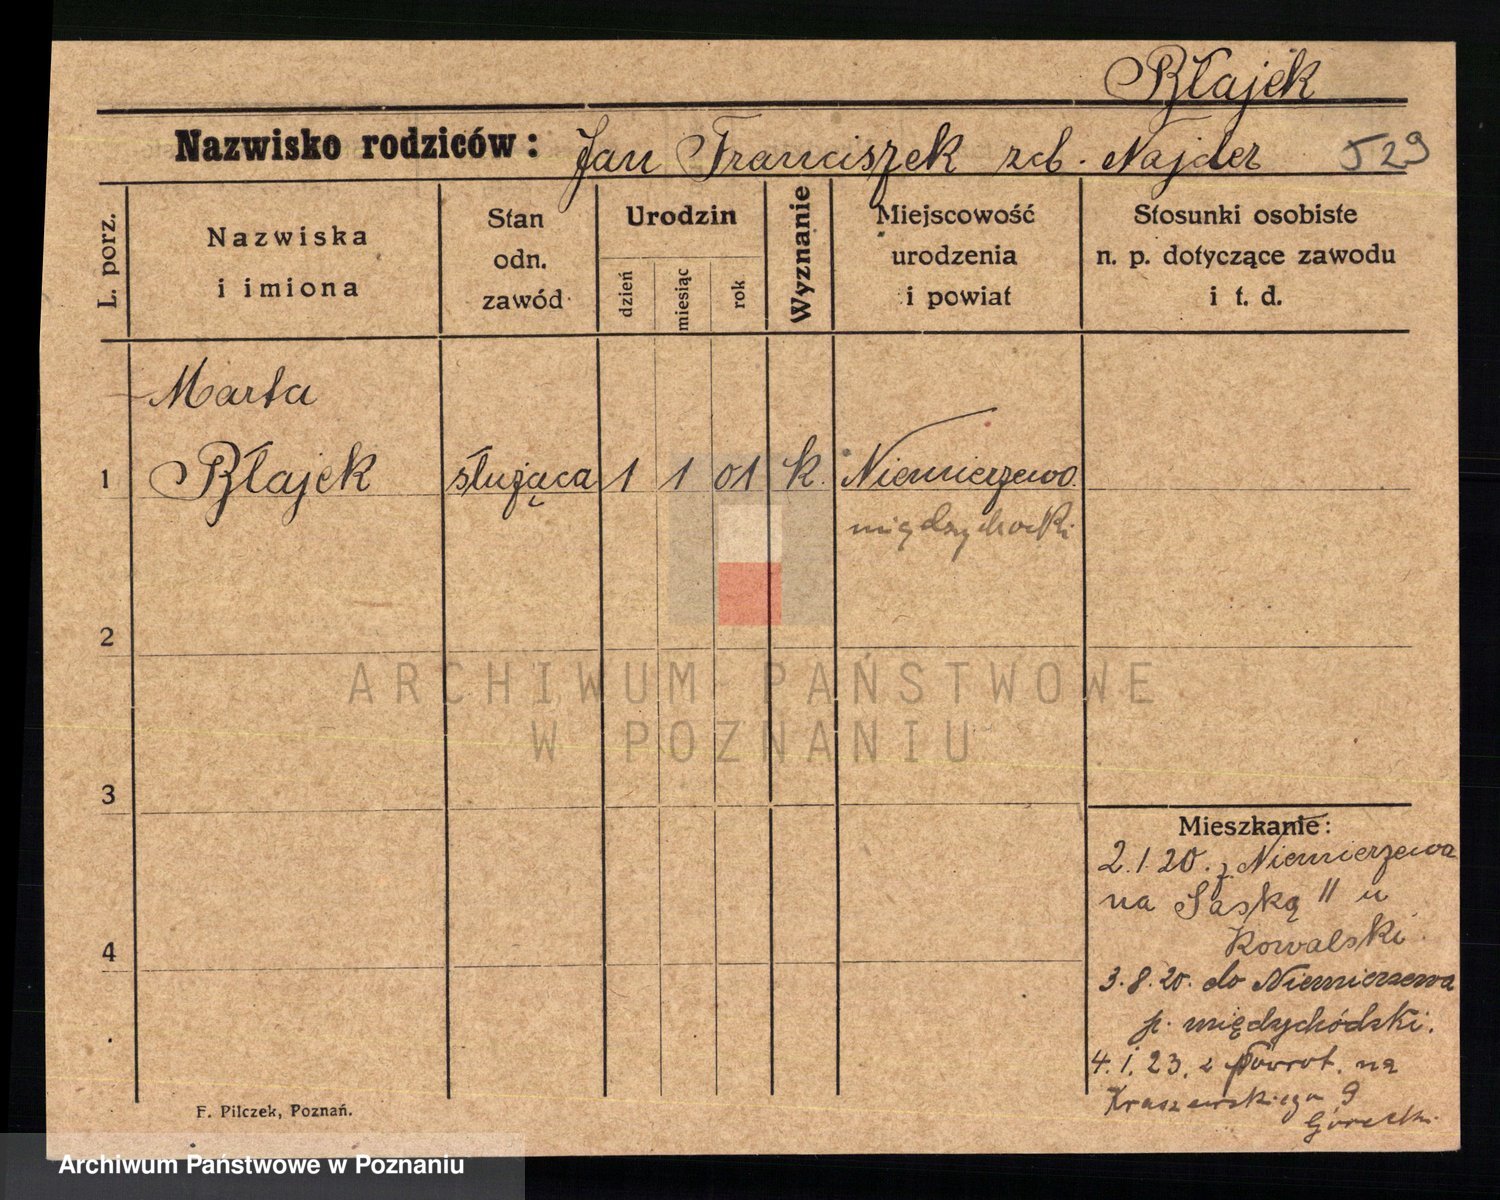 Błajek
Nazwisko rodziców: Jan Franciszek zcb. Najder 529
L. porz.
Nazwiska
i imiona
Stan
odn.
zawód
Urodzin
dzień
miesiąc
rok
Wyznanie
Miejscowość
urodzenia
i powiat
Stosunki osobiste
n. p. dotyczące zawodu
i t. d.
Marta
1 Błajek służąca 1 1 01 k. Niemierzewo
międzychocki
2
3
4
Mieszkanie:
2.1.20. z Niemierzewa
na Saską 11 u
Kowalski
3.8.20. do Niemierzewa
p. międzychódzki.
4.1.23. z powrot. na
Kraszewskiego 9
Górecki
F. Pilczek, Poznań.
ARCHIWUM PAŃSTWOWE
W POZNANIU
Archiwum Państwowe w Poznaniu